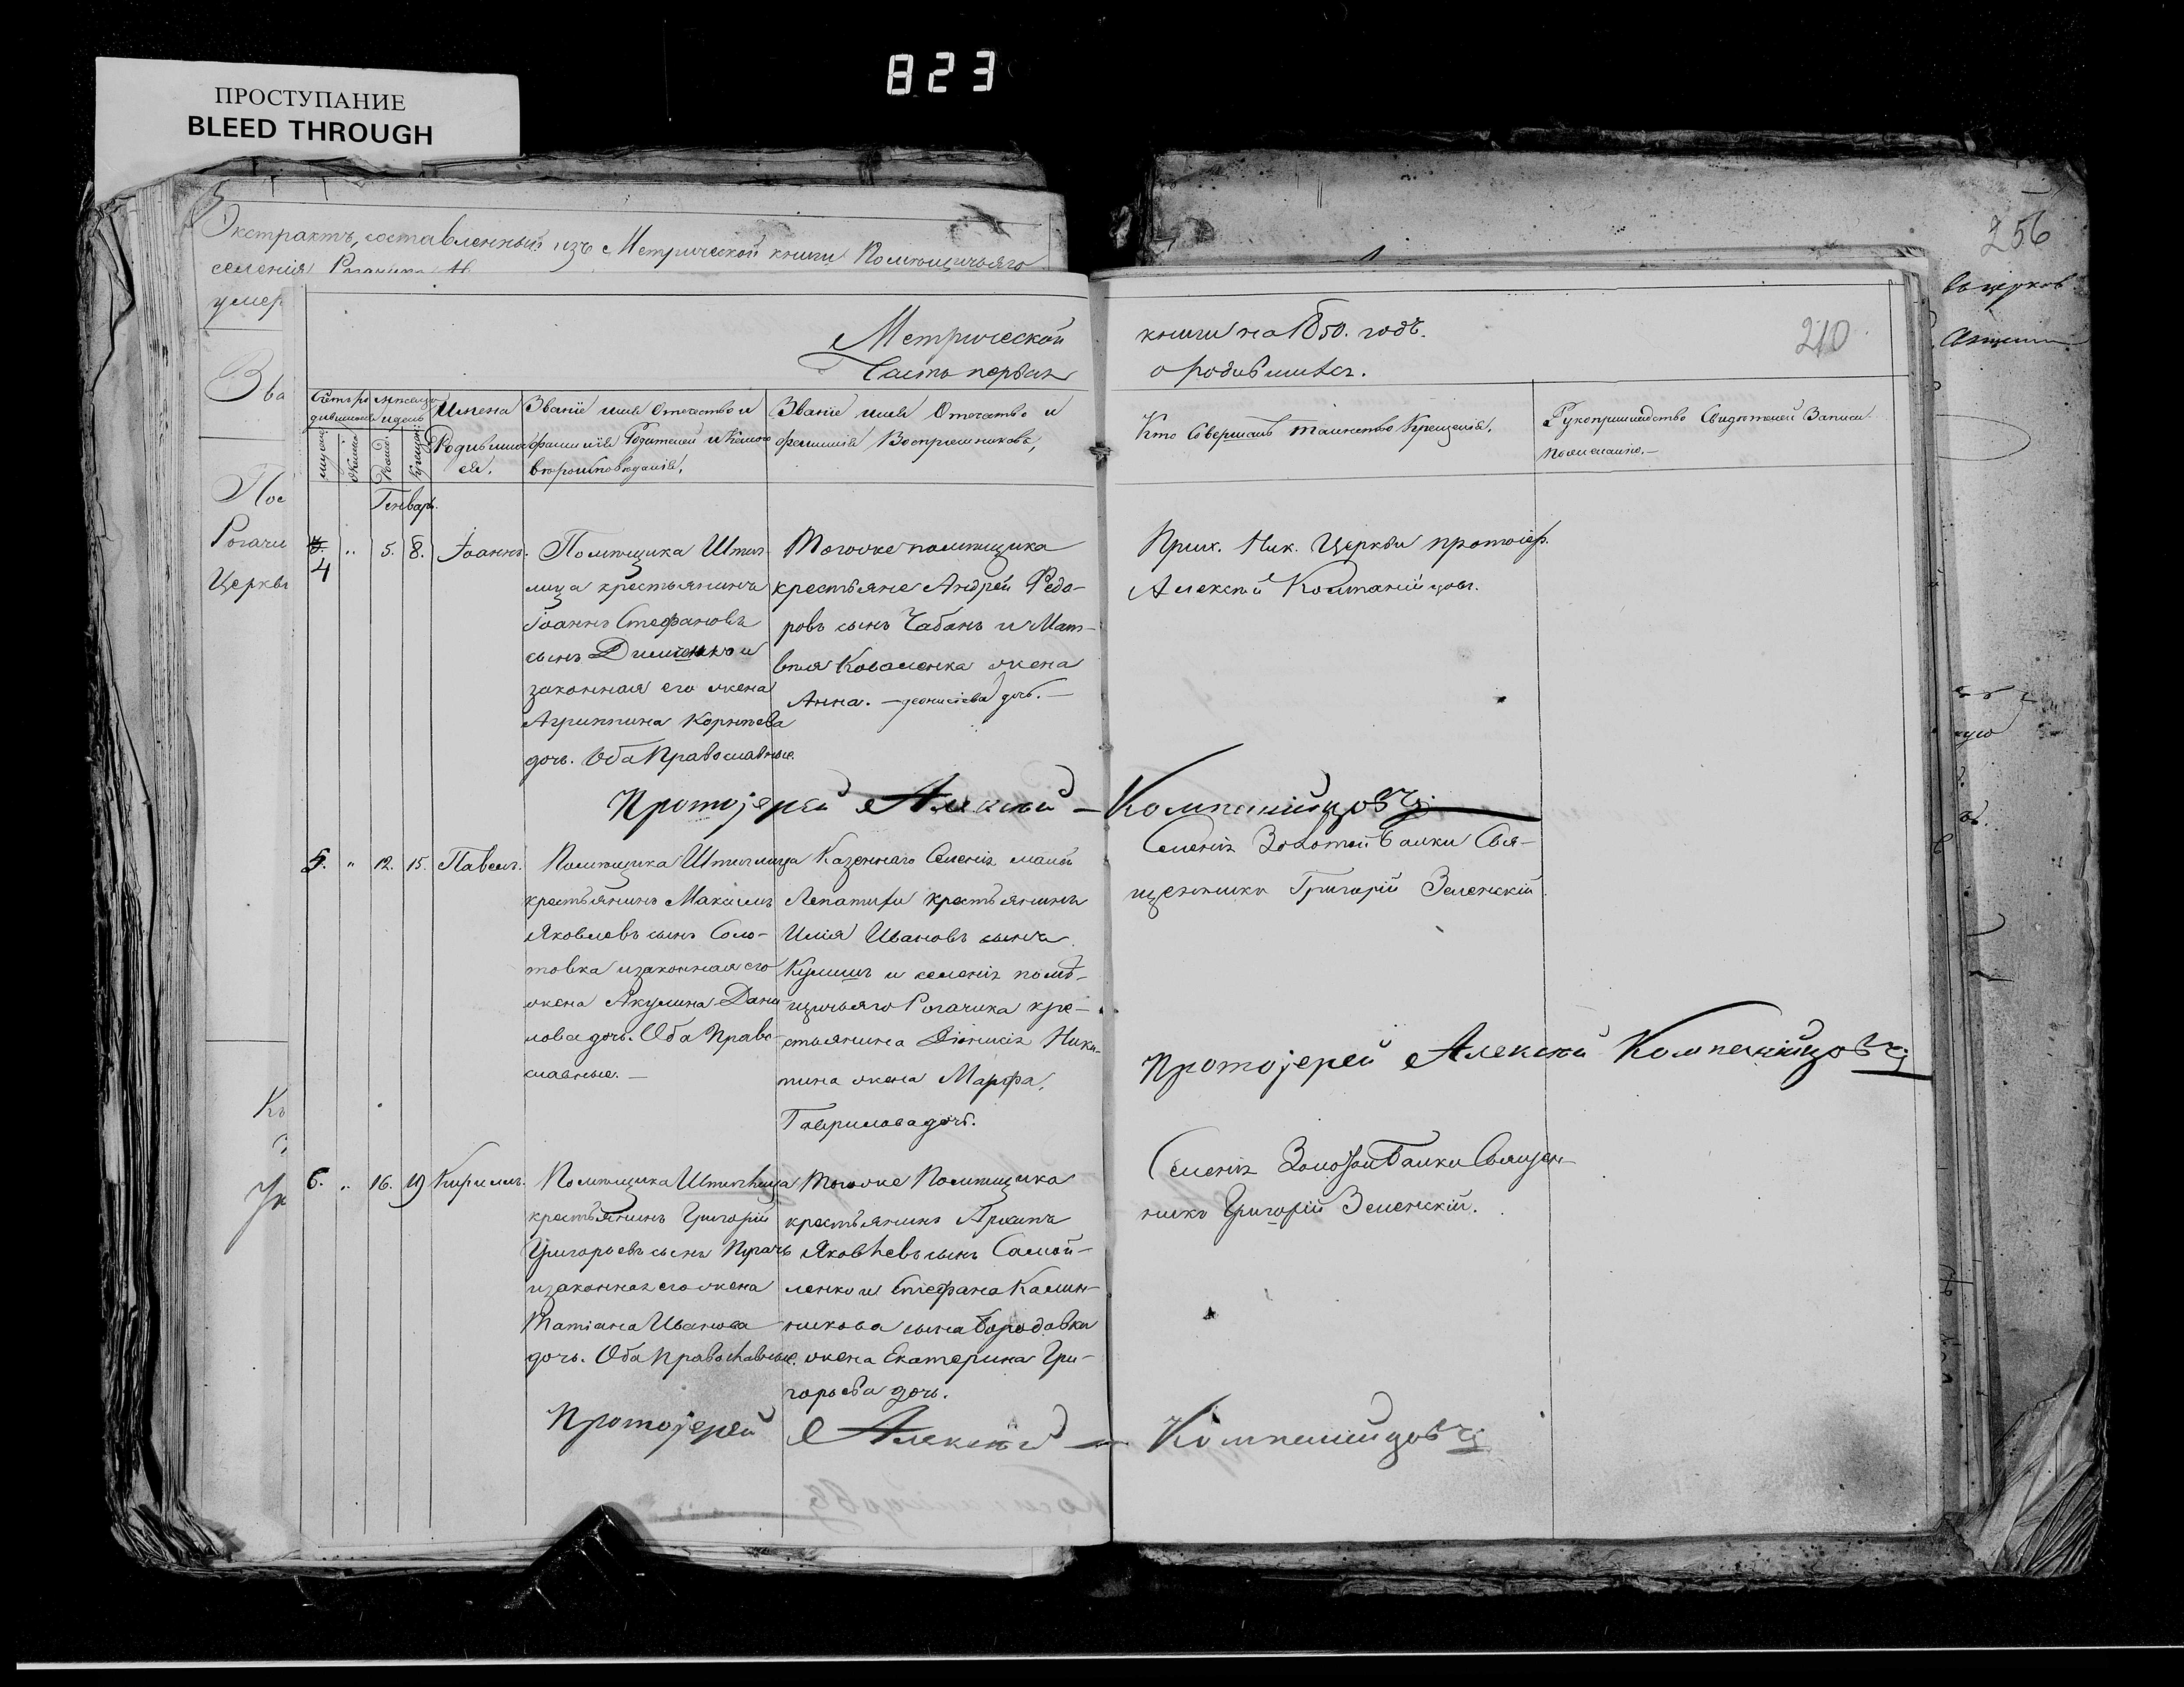 823
ПРОСТУПАНИЕ
BLEED THROUGH
Экстрактъ, составленный изъ Метрической книги Помѣщичьяго
селенія
умер
256
въ церков
Зва
Пос
Рогачи
Церквь
Метрической
Часть первая
книги на 1850. годъ.
о родившихся.
210
Счетъ ро
дившихся
Мѣсяцъ
и день
Имена
Родивших
ся.
Званіе имя Отечество и
фамилія Родителей и какого
вѣроисповѣданія.
Званіе имя Отечество и
фамилія Воспріемниковъ,
Кто Совершалъ таинство Крещенія.
Рукоприкладство Свидѣтелей Записи
по желанію.
Генварь.
4
" 5. 8. Іоаннъ.
Помѣщика Штиг-
лица крестьянинъ
Іоаннъ Стефановъ
сынъ Дименко и
законная его жена
Агриппина Корнѣева
дочь. Оба Православные.
Тогоже помѣщика
крестьяне Андрей Федо-
ровъ сынъ Чабанъ и Мат-
вѣя Коваленка жена
Анна. — дочь. —
Прих. Ник. Церкви протоіер.
Алексѣй Компанійцовъ.
Протоjерей Алексѣй — Компанійцовъ
5. " 12. 15. Павелъ.
Помѣщика Штиглица
крестьянинъ Максимъ
Яковлевъ сынъ Соло-
товка и законная его
жена Акулина Дани-
лова дочь. Оба Право-
славные. —
Казеннаго Селенія малой
Лепатихи крестьянинъ
Илія Ивановъ сынъ
Кулишъ и селенія помѣ-
щичьяго Рогачика кре-
стьянина Діонисія Ники-
тина жена Марфа,
Гаврилова дочь.
Селенія Золотой Балки Свя-
щенникъ Григорій Зеленскій.
Протоjерей Алексѣй Компанійцовъ
6. " 16. 19 Кириллъ.
Помѣщика Штиглица
крестьянинъ Григорій
Григорьевъ сынъ Пугачъ
и законная его жена
Татіана Иванова
дочь. Оба православные.
Тогоже Помѣщика
крестьянинъ Архипъ
Яковлевъ сынъ Самой-
ленко и Стефана Калин-
никова сына Бородавки
жена Екатерина Гри-
горьева дочь.
Селенія Золотой Балки Священ-
никъ Григорій Зеленскій.
Протоjерей Алексѣй — Компанійцовъ